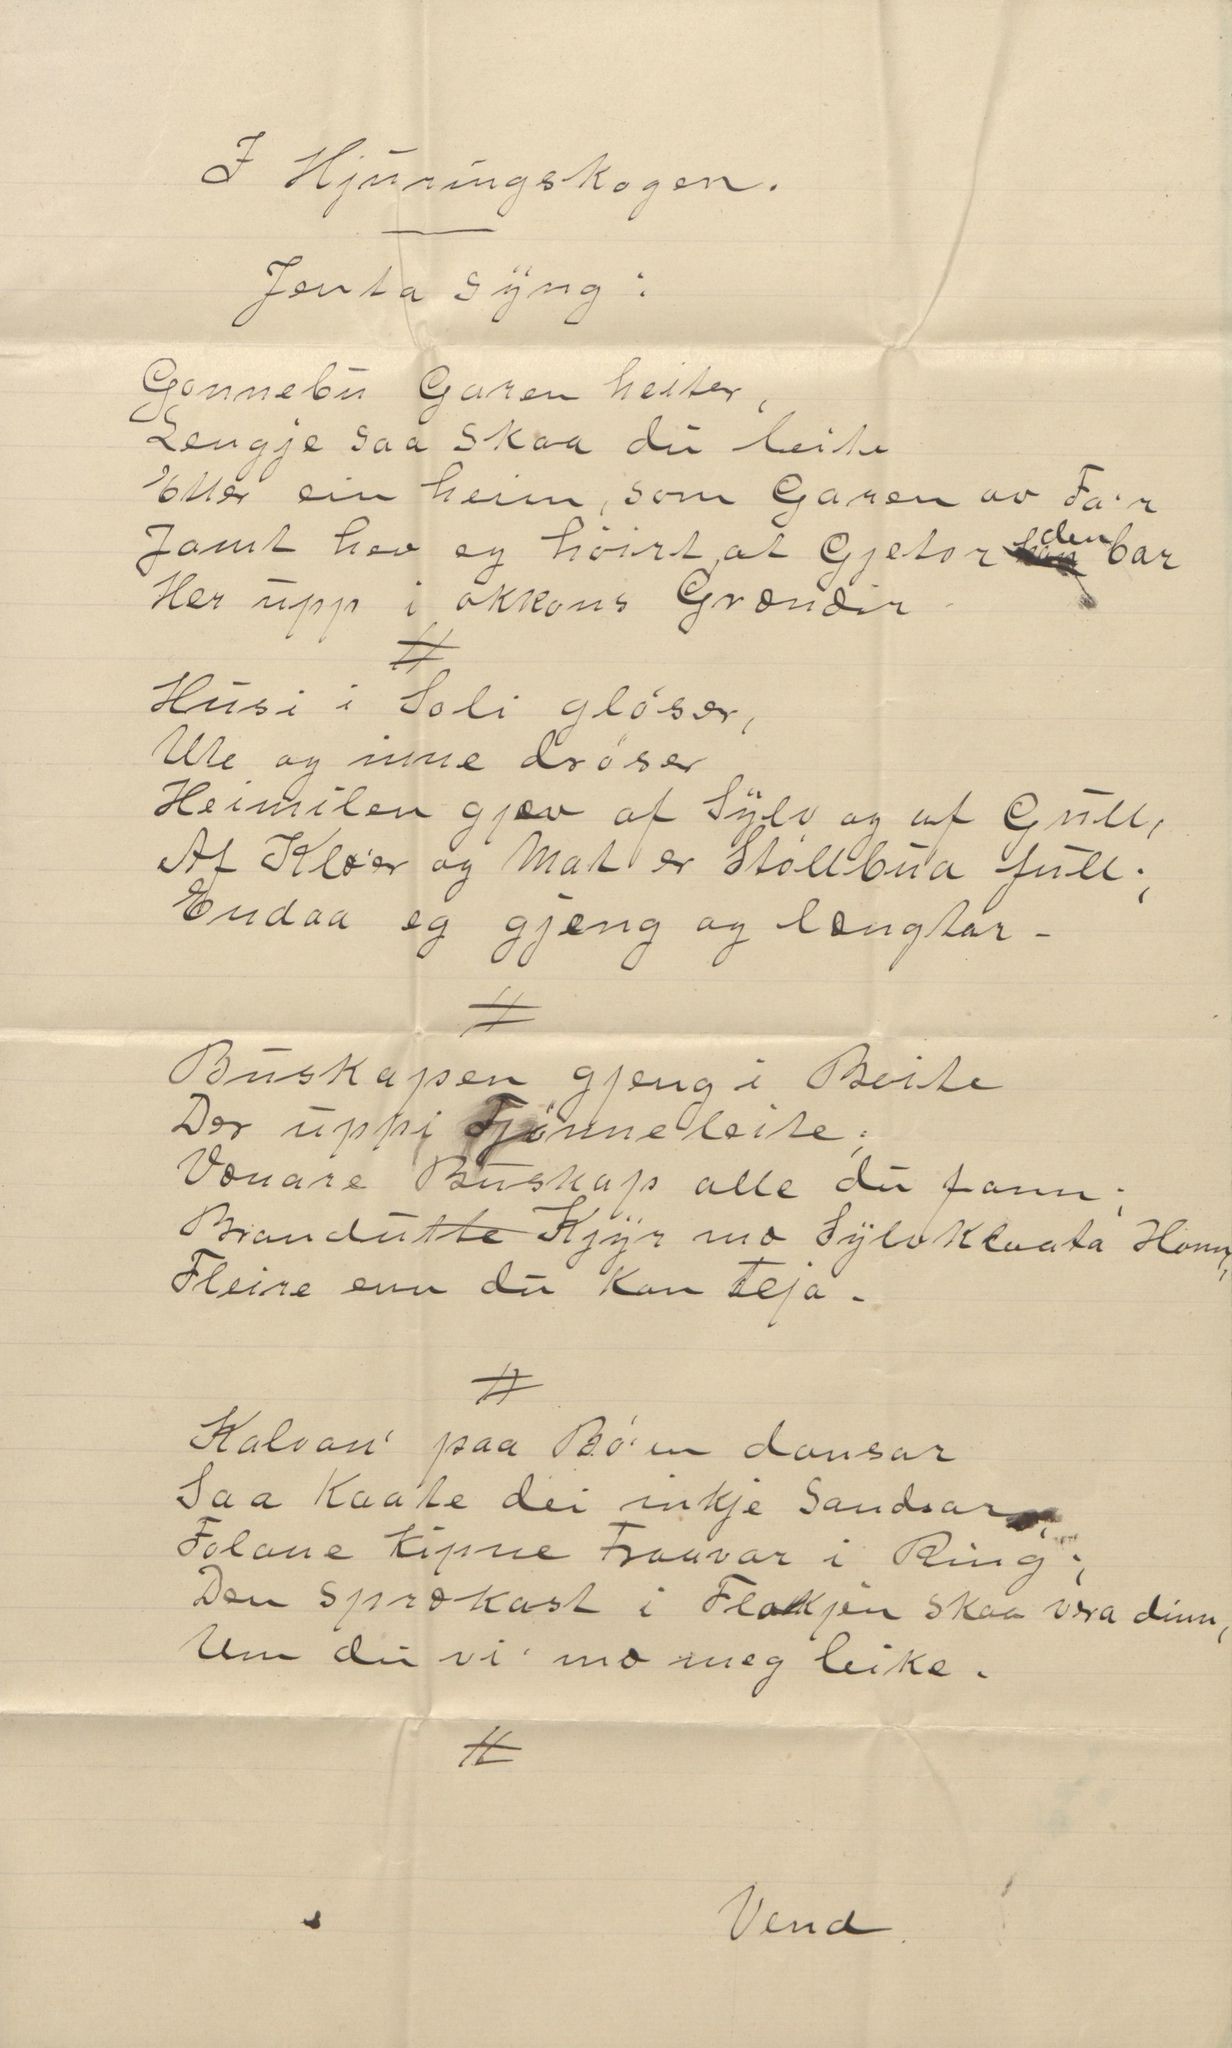 I Hjuringskogen.
Jenta syng:
Gonnebu Garen heiter,
Lengje saa skaa du leite
Etter ein heim, som Garen av Fa'r
Jamt hev eg höirt, at Gjetor den bar
Her upp i okkons Grændir -
#
Husi i Soli glöser,
Ute og inne dröser
Heimilen gjæv af Sylv og af Gull,
Af Klæ'er og Mat er Stöllbua full;
Endaa eg gjeng og længtar -
#
Buskapen gjeng i Beite
Der uppi Tjönneleite;
Vænare Buskap alle du fann;
Brandutte Kjyr mæ Sylvklaata Honn,
Fleire enn du kan teja -
#
Kalvan' paa Bö'en dansar
Saa kaate dei inkje Sandsar;
Folane kipne Traavar i Ring;
Den sprækast i Flokkjen skaa vera dinn,
Um du vi' mæ meg leike.
#
Vend.